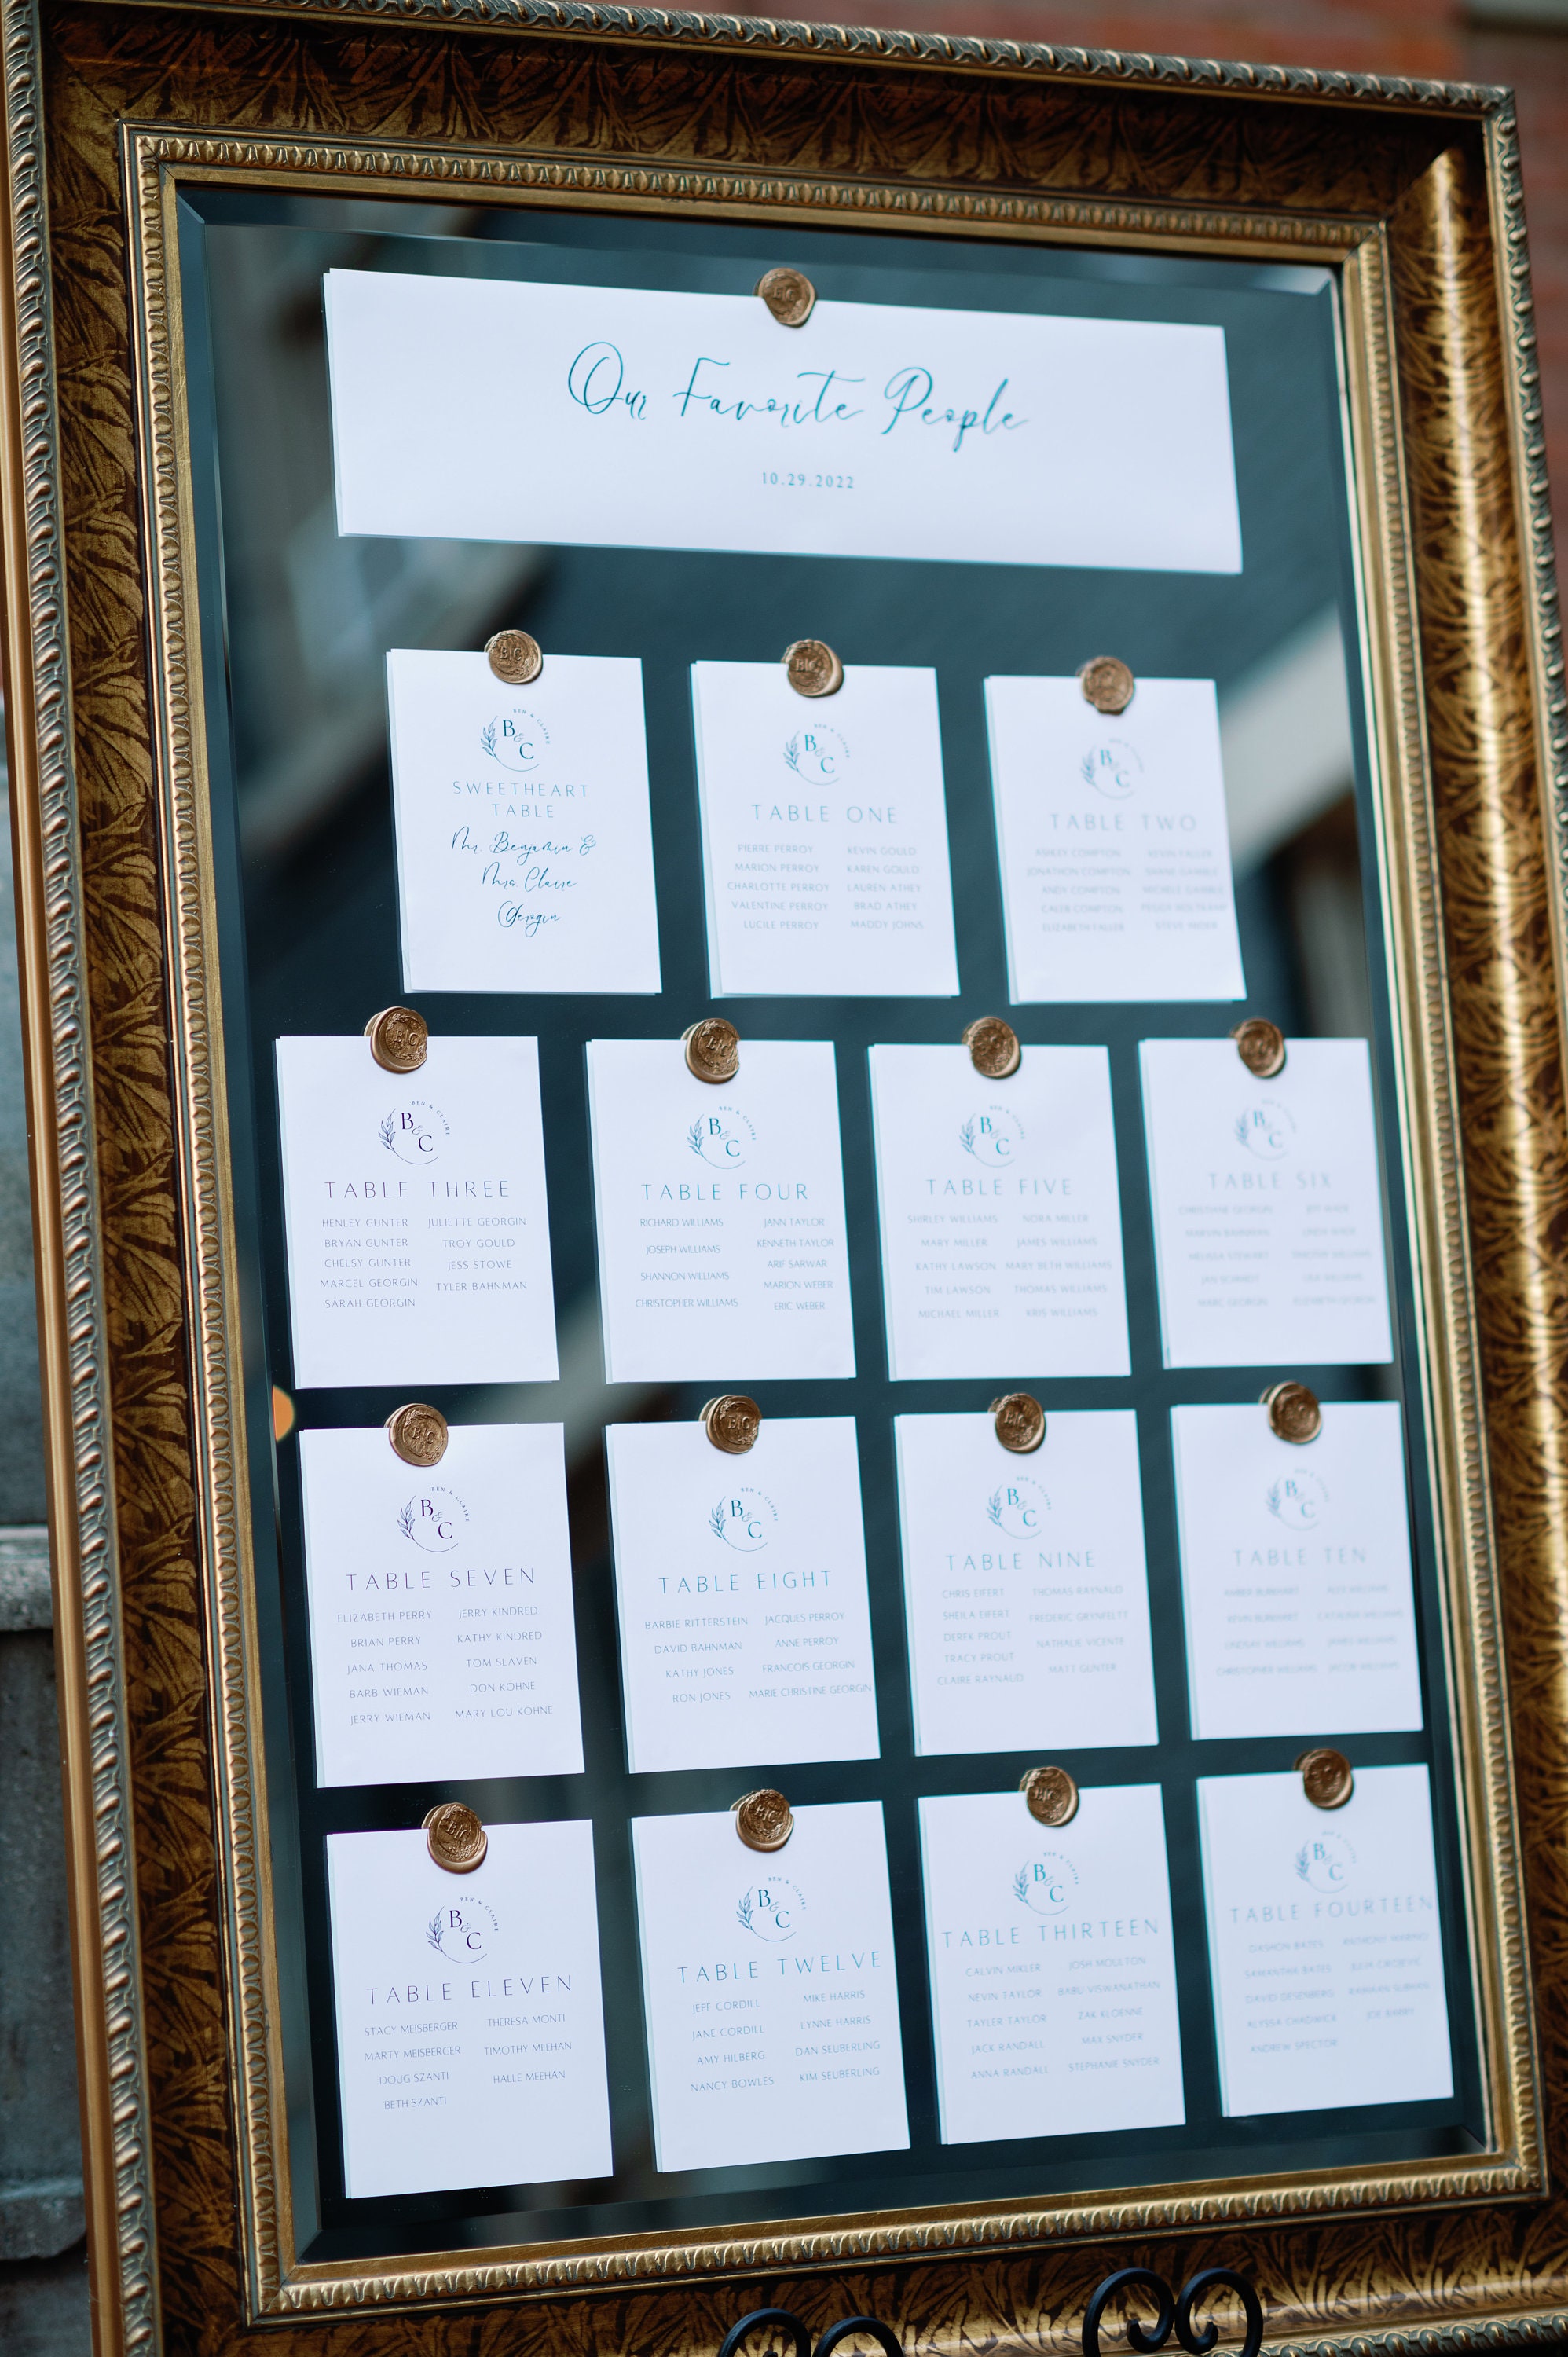 Our Favorite People
10.29.2022
BEN & CLAIRE
B&C
SWEETHEART
TABLE
Mr. Benjamin &
Mrs Claire
Georgin
BEN & CLAIRE
B&C
TABLE ONE
PIERRE PERROY KEVIN GOULD
MARION PERROY KAREN GOULD
CHARLOTTE PERROY LAUREN ATHEY
VALENTINE PERROY BRAD ATHEY
LUCILE PERROY MADDY JOHNS
B&C
TABLE TWO
ASHLEY COMPTON KEVIN FALLER
JONATHON COMPTON
ANDY COMPTON MICHELE GAMBLE
CALEB COMPTON
ELIZABETH FALLER
BEN & CLAIRE
B&C
TABLE THREE
HENLEY GUNTER JULIETTE GEORGIN
BRYAN GUNTER TROY GOULD
CHELSY GUNTER JESS STOWE
MARCEL GEORGIN TYLER BAHNMAN
SARAH GEORGIN
BEN & CLAIRE
B&C
TABLE FOUR
RICHARD WILLIAMS JANN TAYLOR
JOSEPH WILLIAMS KENNETH TAYLOR
SHANNON WILLIAMS ARIF SARWAR
CHRISTOPHER WILLIAMS MARION WEBER
ERIC WEBER
BEN & CLAIRE
B&C
TABLE FIVE
SHIRLEY WILLIAMS NORA MILLER
MARY MILLER JAMES WILLIAMS
KATHY LAWSON MARY BETH WILLIAMS
TIM LAWSON THOMAS WILLIAMS
MICHAEL MILLER KRIS WILLIAMS
B&C
TABLE SIX
CHRISTIANE GEORGIN JEFF WADE
MELISSA STEWERT
JAN SCHMIDT
MARC GEORGIN ELIZABETH GEORGIN
BEN & CLAIRE
B&C
TABLE SEVEN
ELIZABETH PERRY JERRY KINDRED
BRIAN PERRY KATHY KINDRED
JANA THOMAS TOM SLAVEN
BARB WIEMAN DON KOHNE
JERRY WIEMAN MARY LOU KOHNE
BEN & CLAIRE
B&C
TABLE EIGHT
BARBIE RITTERSTEIN JACQUES PERROY
DAVID BAHNMAN ANNE PERROY
KATHY JONES FRANCOIS GEORGIN
RON JONES MARIE CHRISTINE GEORGIN
BEN & CLAIRE
B&C
TABLE NINE
CHRIS EIFERT THOMAS RAYNALO
SHEILA EIFERT FREDERIC GRYNFELTT
DEREK PROUT NATHALIE VICENTE
TRACY PROUT MATT GUNTER
CLAIRE RAYNALO
B&C
TABLE TEN
AMBER BURKHART ALEX WILLIAMS
KEVIN BURKHART WILLIAMS
LINDSAY WILLIAMS JAMES WILLIAMS
CHRISTOPHER WILLIAMS JACOB WILLIAMS
BEN & CLAIRE
B&C
TABLE ELEVEN
STACY MEISBERGER THERESA MONTI
MARTY MEISBERGER TIMOTHY MEEHAN
DOUG SZANTI HALLE MEEHAN
BETH SZANTI
BEN & CLAIRE
B&C
TABLE TWELVE
JEFF CORDILL MIKE HARRIS
JANE CORDILL LYNNE HARRIS
AMY HILBERG DAN SEUBERLING
NANCY BOWLES KIM SEUBERLING
BEN & CLAIRE
B&C
TABLE THIRTEEN
CALVIN MIKLER JOSH MOULTON
NEVIN TAYLOR BABU VISWANATHAN
TAYLER TAYLOR ZAK KLOENNE
JACK RANDALL MAX SNYDER
ANNA RANDALL STEPHANIE SNYDER
B&C
TABLE FOURTEEN
DASHON BATES ANTHONY
SAMANTHA BATES JULIA
DAVID DESENBERG
ALYSSA CHADWICK JOE BARRY
ANDREW SPECTOR